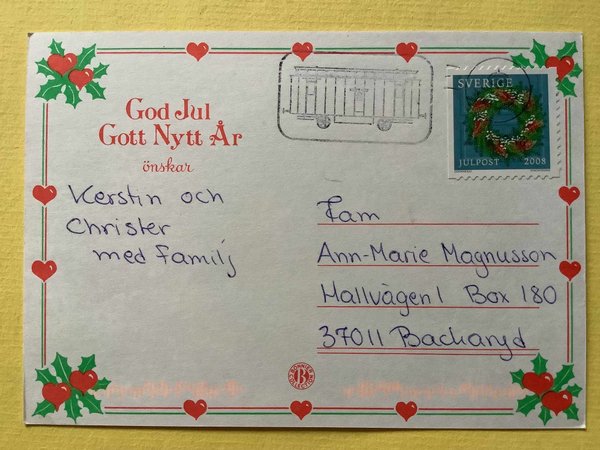 God Jul
Gott Nytt År
önskar
Kerstin och
Christer
med Familj
SVERIGE
JULPOST 2008
Fam
Ann-Marie Magnusson
Hallvägen 1 Box 180
37011 Backaryd
B